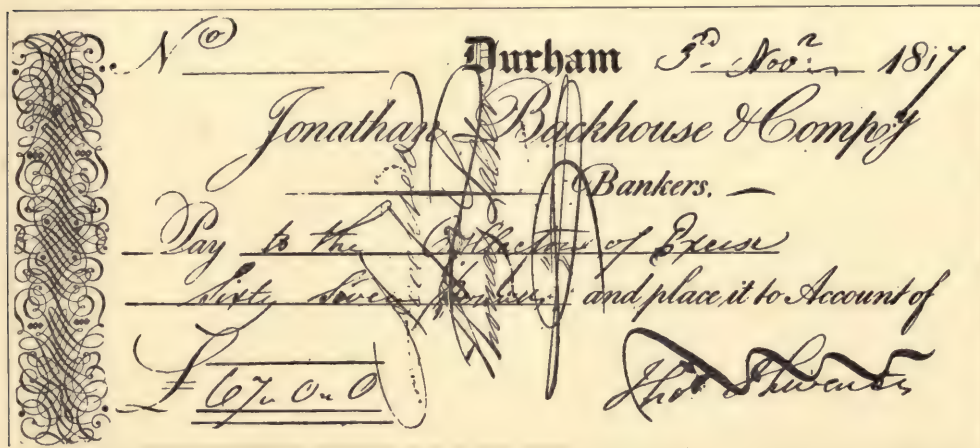 No Durham 3rd Novr 1817
Jonathan Backhouse & Compy
Bankers.
Pay to the Collector of Excise
Sixty Seven Pounds and place it to Account of
£ 67 " 0 " 0
Thos